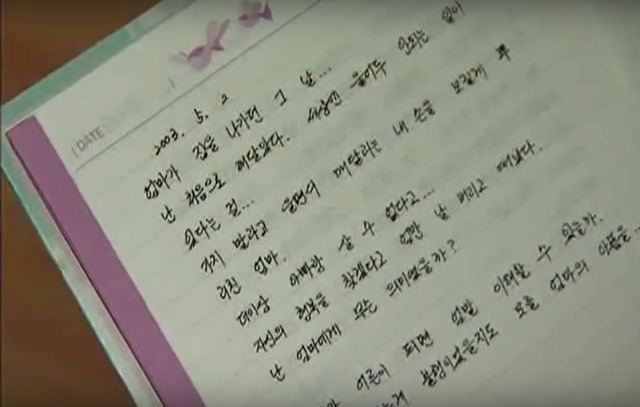 DATE
2003. 5. 2
엄마가 집을 나가던 그 날...
난 처음으로 깨달았다. 세상엔 울어도 안되는 일이
있다는 걸...
가지 말라고 울면서 매달리는 내 손을 모질게 뿌
리친 엄마.
더이상 아빠랑 살 수 없다고...
자신의 행복을 찾겠다고 엄만 날 버리고 떠났다.
난 엄마에게 무슨 의미였을까?
어른이 되면 엄말 이해할 수 있을까.
불행이었을지도 모를 엄마의 아픔을...